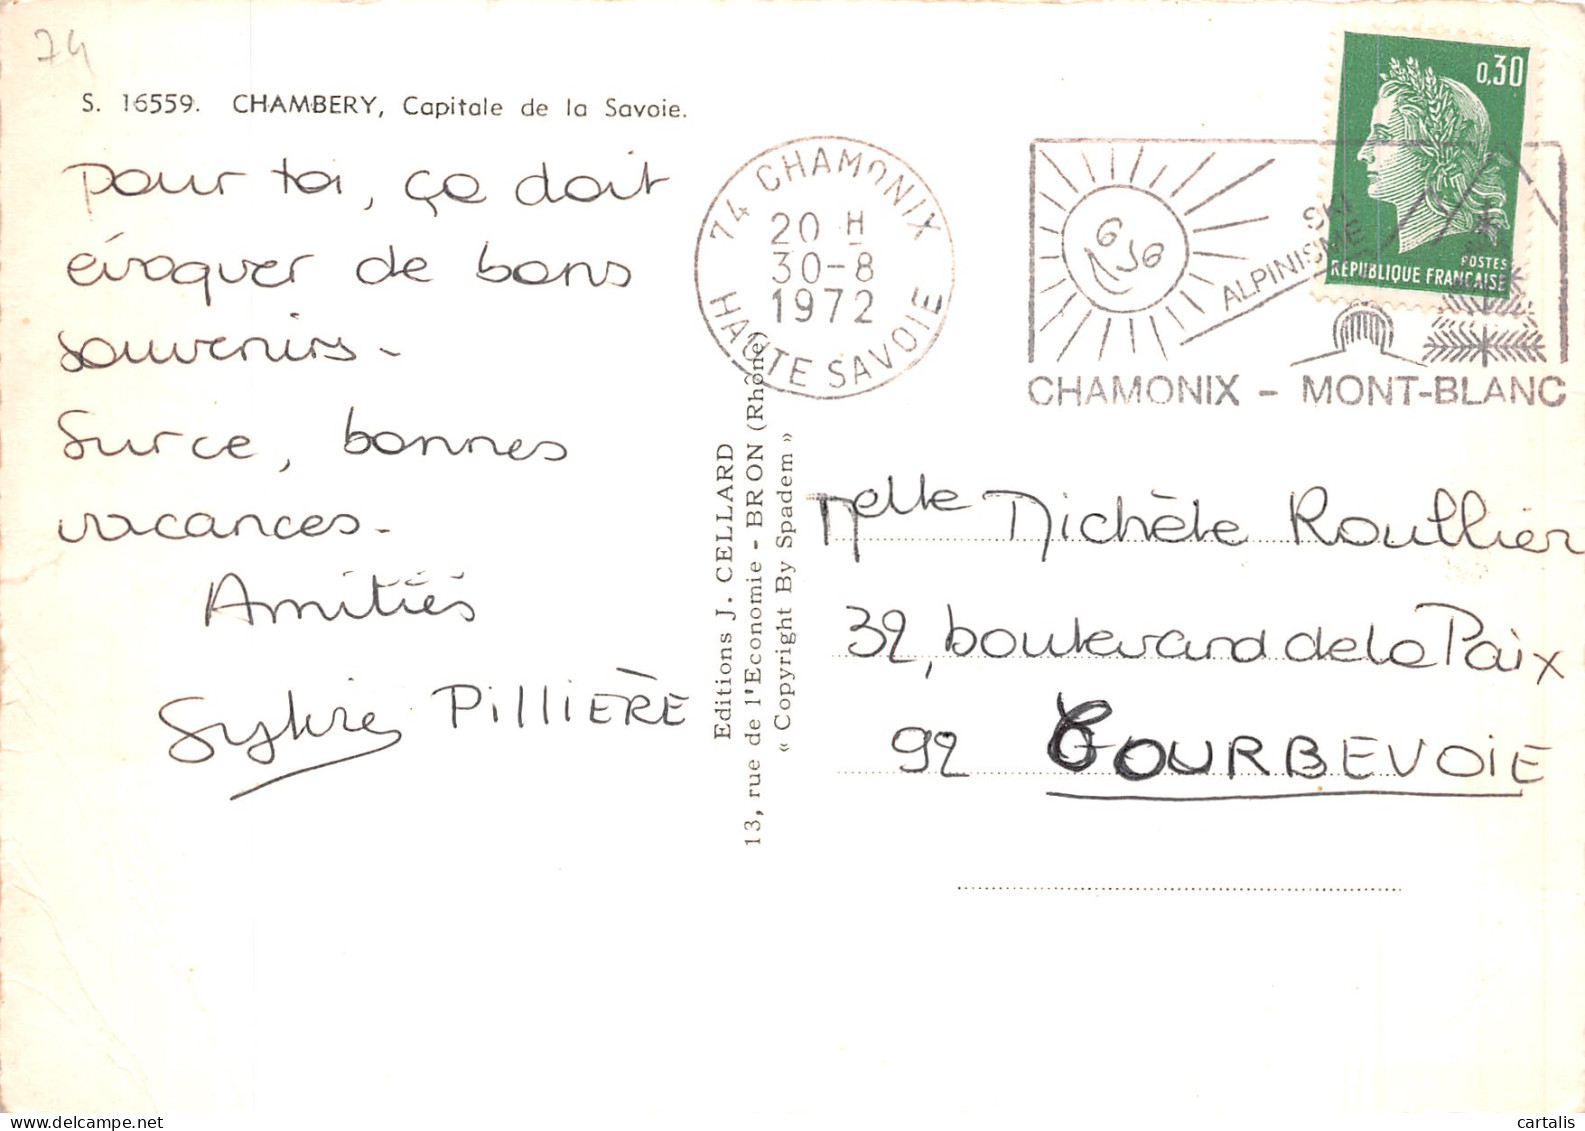 74
S. 16559. CHAMBERY, Capitale de la Savoie.
Pour toi, ça doit
évoquer de bons
souvenirs-
Sur ce, bonnes
vacances-
Amitiés
Sylvie PILLIÈRE
Editions J. CELLARD
13, rue de l'Economie - BRON (Rhône)
« Copyright By Spadem »
74 CHAMONIX
20 H
30-8
1972
HAUTE SAVOIE
SKI
ALPINISME
CHAMONIX - MONT-BLANC
0,30
POSTES
REPUBLIQUE FRANÇAISE
Melle Michèle Roullier
32, boulevard de la Paix
92 COURBEVOIE
cartalis